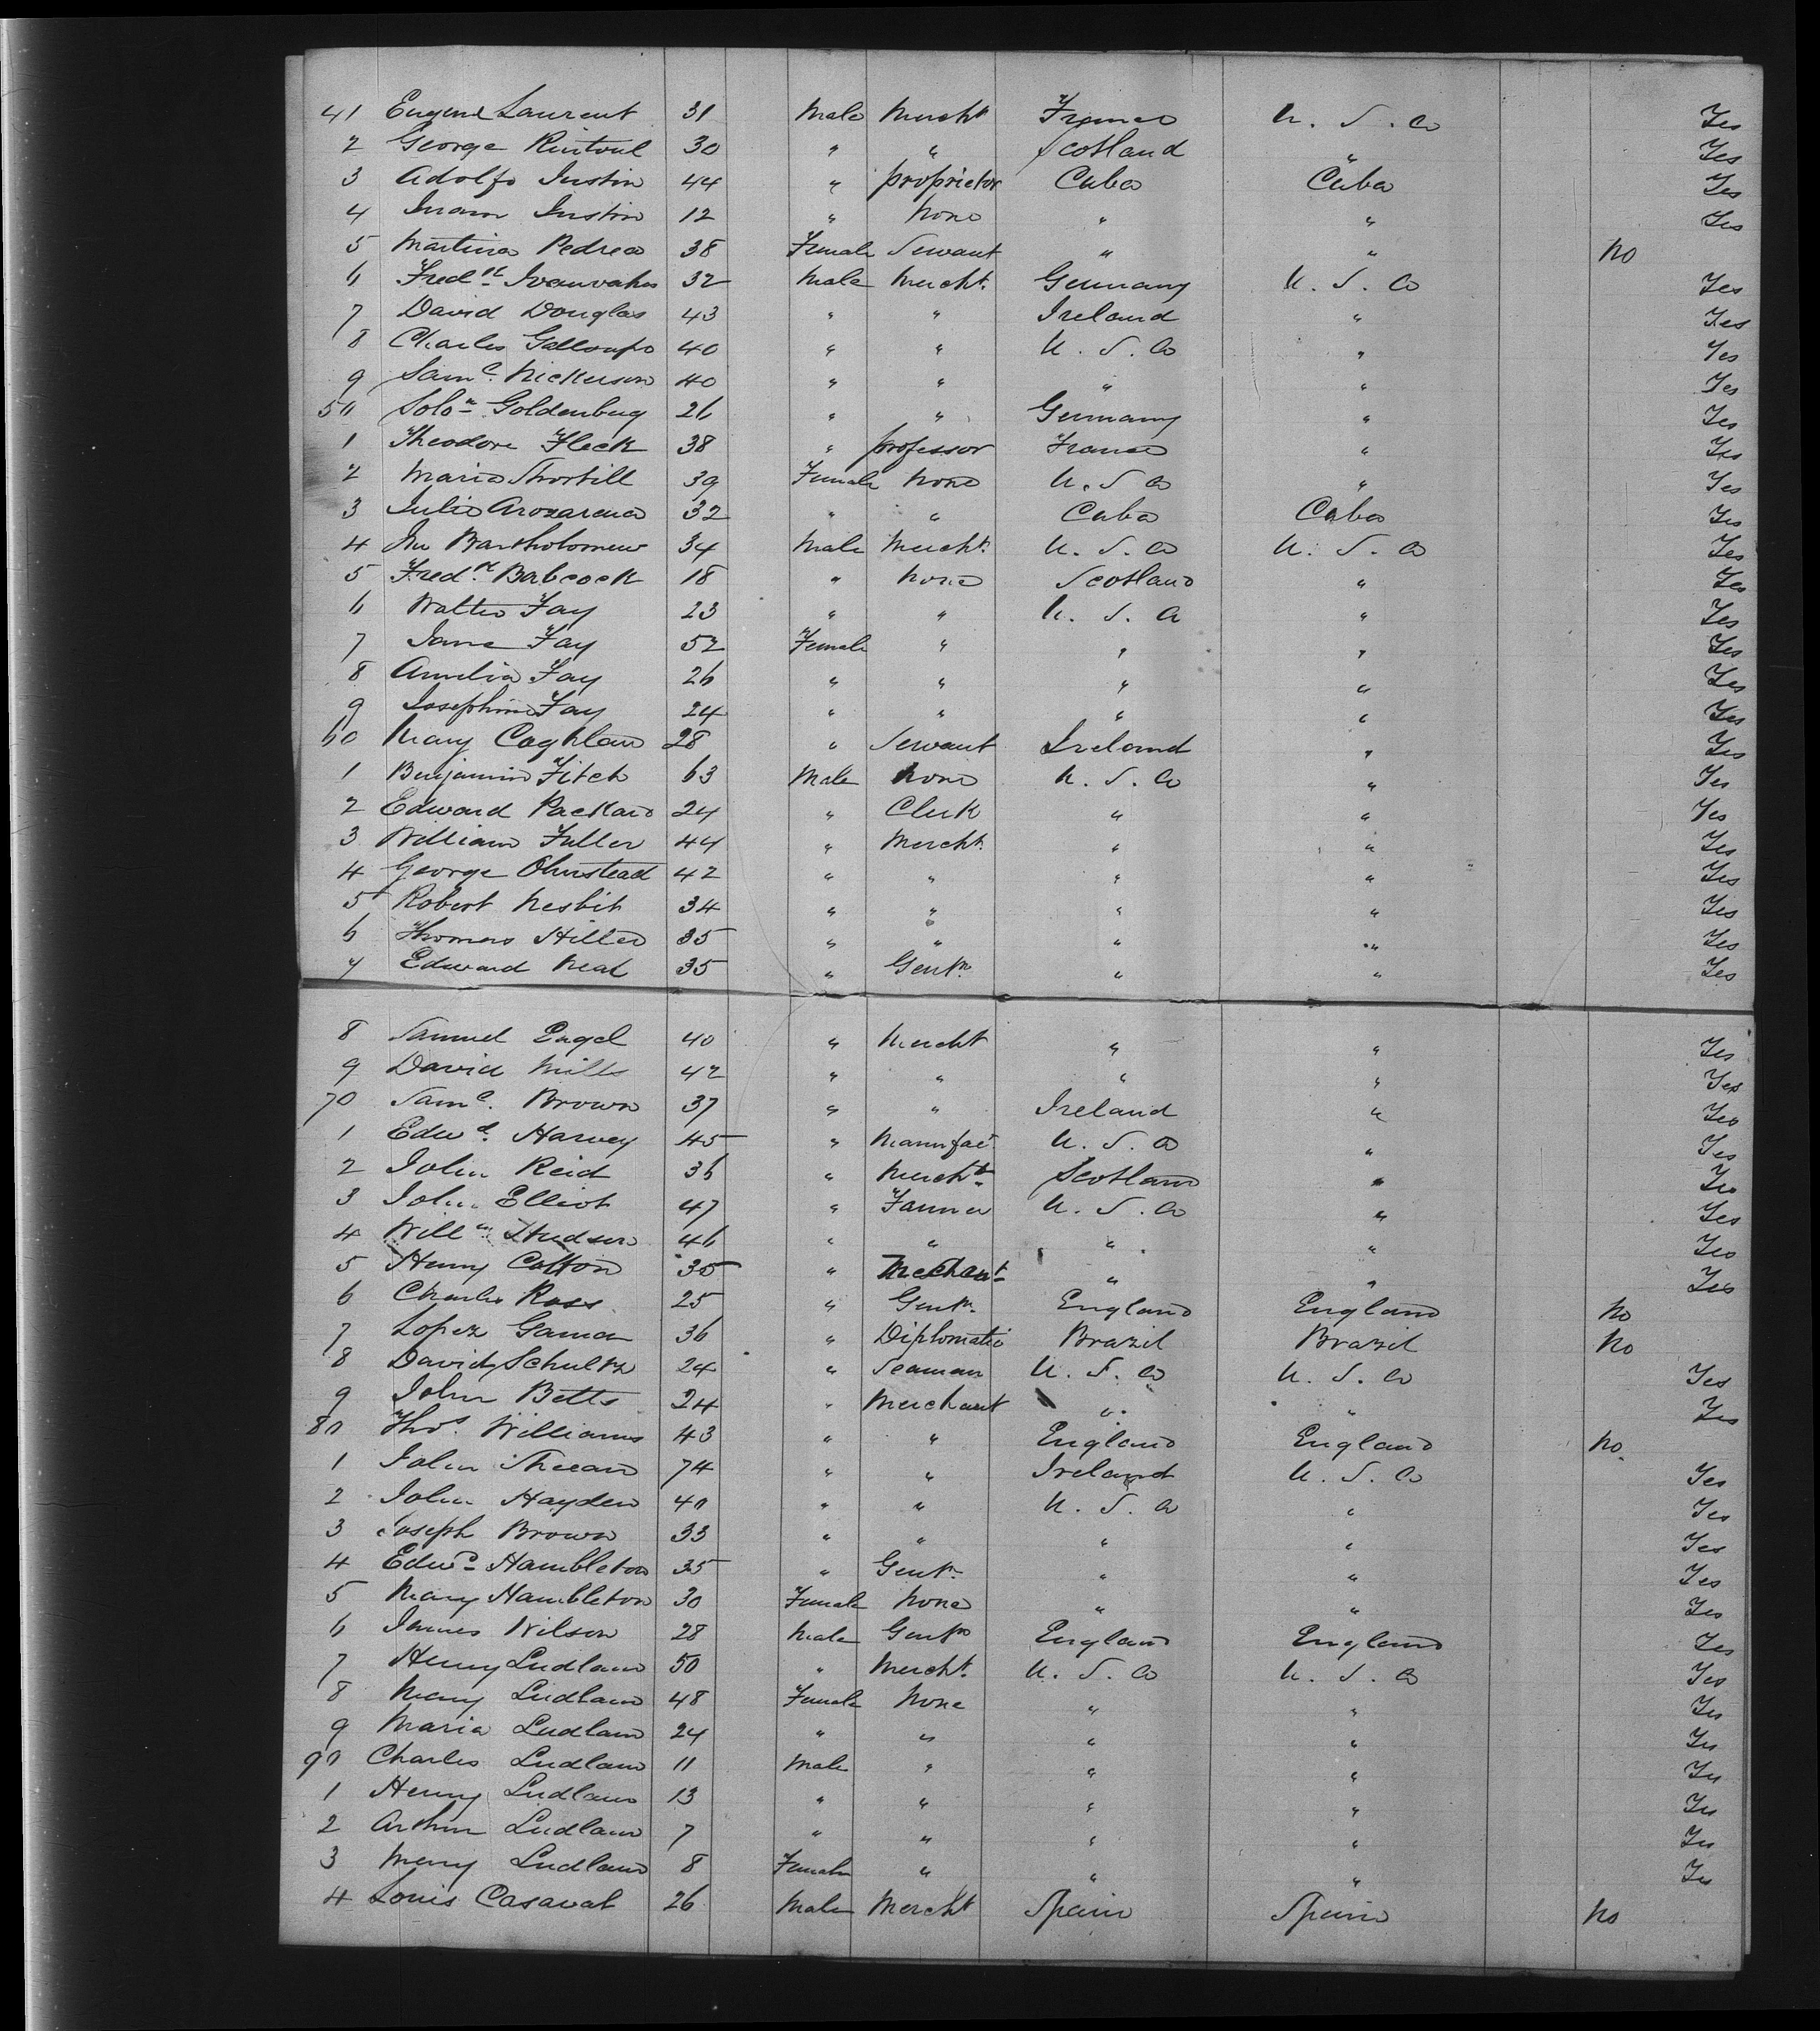 41 Eugene Laurent 31 Male Mercht France U. S. A Yes
2 George Rintoul 30 " " Scotland " Yes
3 Adolfo Justin 44 " proprietor Cuba Cuba Yes
4 Juan Justin 12 " None " " Yes
5 Martina Pedrea 38 Female Servant " " No
6 Fredk. 32 Male Mercht. Germany U. S. A Yes
7 David Douglas 43 " " Ireland " Yes
8 Charles Galloupo 40 " " U. S. A " Yes
9 Saml. Nickerson 40 " " " " Yes
50 Solon Goldenberg 26 " " Germany " Yes
1 Theodore Fleck 38 " professor France " Yes
2 Maria Thorhill 39 Female None U. S A " Yes
3 Julia Arozarena 32 " " Cuba Cuba Yes
4 Jno Bartholomew 34 Male Mercht. U. S. A U. S. A Yes
5 Fredk. Babcock 18 " None Scotland " Yes
6 Walter Fay 23 " " U. S. A " Yes
7 Jane Fay 52 Female " " " Yes
8 Amelia Fay 26 " " " " Yes
9 Josephine Fay 24 " " " " Yes
60 Mary Coghlan 28 " Servant Ireland " Yes
1 Benjamin Fitch 63 Male None U. S. A " Yes
2 Edward Packard 24 " Clerk " " Yes
3 William Fuller 44 " Mercht. " " Yes
4 George Olmstead 42 " " " " Yes
5 Robert Nesbit 34 " " " " Yes
6 Thomas Hiller 35 " " " " Yes
7 Edward Neal 35 " Gentn. " " Yes
8 Samuel Engel 40 " Mercht " " Yes
9 David Mills 42 " " " " Yes
70 Saml. Brown 37 " " Ireland " Yes
1 Edwd. Harvey 45 " Manufact U. S. A " Yes
2 John Reid 36 " Mercht. Scotland " Yes
3 John Elliot 47 " Farmer U. S. A " Yes
4 Willm Hudson 46 " " " " Yes
5 Henry Colton 35 " Merchant " " Yes
6 Charles Ross 25 " Gentn. England England No
7 Lopez Gama 36 " Diplomatic Brazil Brazil No
8 David Schultz 24 " Seaman U. S. A U. S. A Yes
9 John Betts 24 " Merchant " " Yes
80 Thos. Williams 43 " " England England No.
1 John 74 " " Ireland U. S. A Yes
2 John Hayden 40 " " U. S. A " Yes
3 Joseph Brown 33 " " " " Yes
4 Edwd Hambleton 35 " Gentn. " " Yes
5 Mary Hambleton 30 Female None " " Yes
6 James Wilson 28 Male Gentn England England Yes
7 Henry Ludlam 50 " Mercht. U. S. A U. S. A Yes
8 Mary Ludlam 48 Female None " " Yes
9 Maria Ludlam 24 " " " " Yes
90 Charles Ludlam 11 Male " " " Yes
1 Henry Ludlam 13 " " " " Yes
2 Arthur Ludlam 7 " " " " Yes
3 Mary Ludlam 8 Female " " " Yes
4 Louis Casaval 26 Male Mercht Spain Spain No